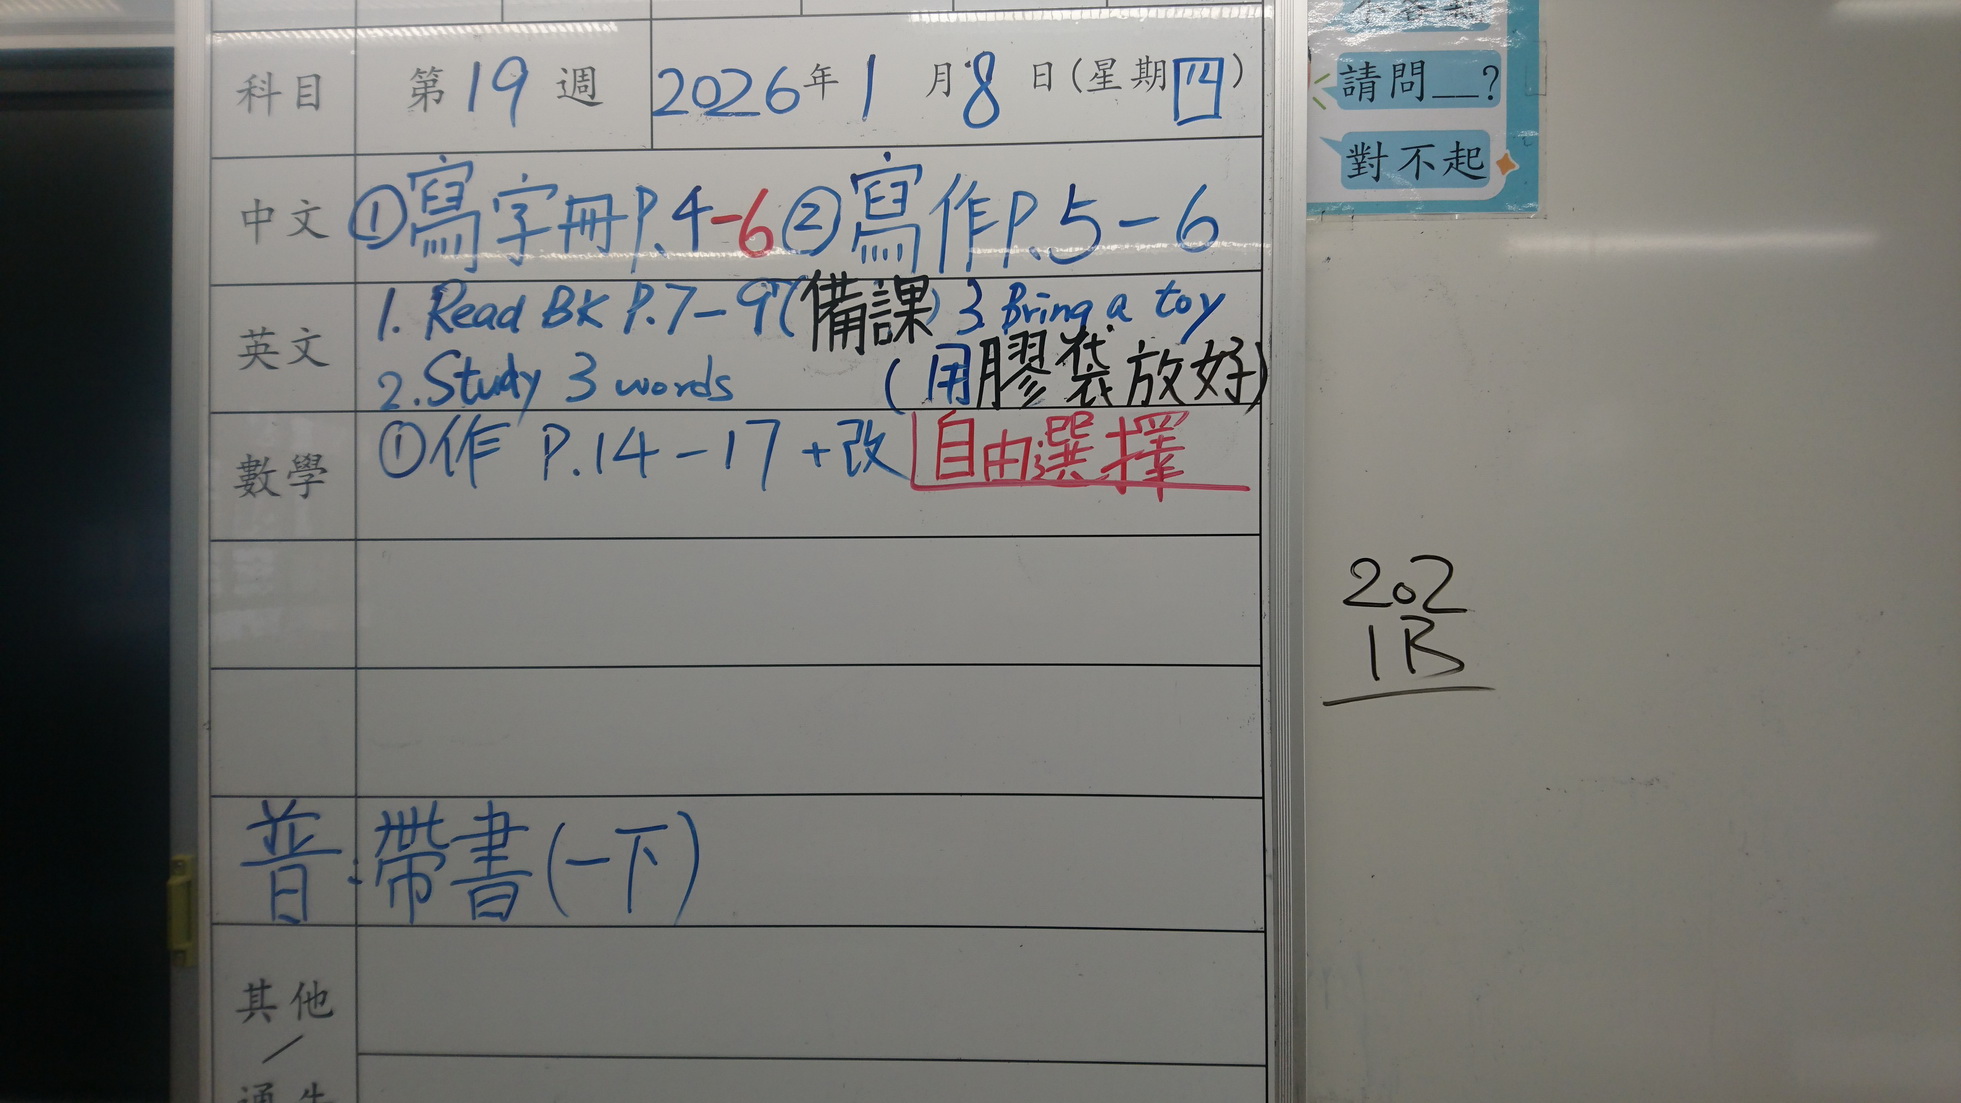 科目 第19週 2026年1月8日(星期四)
中文 ①寫字冊P.4-6 ②寫作P.5-6
英文 1. Read BK P.7-9(備課) 3. Bring a toy
2. Study 3 words (用膠袋放好)
數學 ①作 P.14-17+改 自由選擇
普:帶書(一下)
其他
/
請問__?
對不起
202
1B